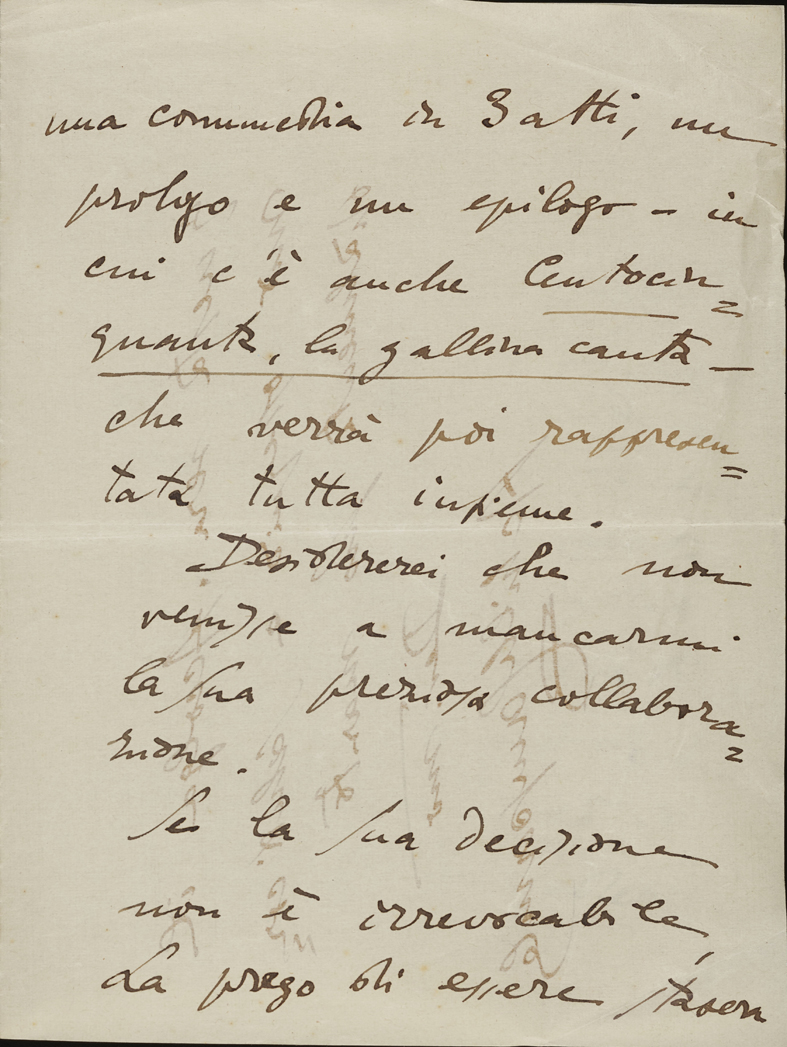 una commedia in 3 atti, un
prologo e un epilogo – in
cui c'è anche Centocin=
quanta, la gallina canta –
che verrà poi rappresen=
tata tutta insieme.
Desidererei che non
venisse a mancarmi
la sua preziosa collabora=
zione.
Se la sua decisione
non è irrevocabile,
La prego di essere stasera